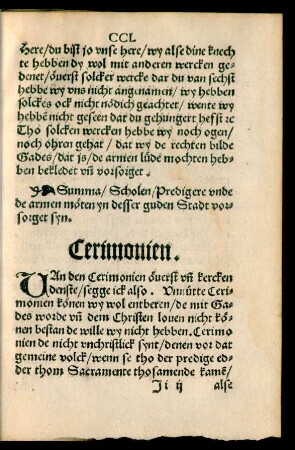 CCL
Here/du bist jo vnse here/wy alse dine knech
te hebben dy wol mit anderen wercken ge-
denet/överst solcker wercke dar du van sechst
hebbe wy vns nicht angenamen/wy hebben
solckes ock nicht nödich geachtet/wente wy
hebbē nicht geseen dat du gehungert hefst ꝛc
Tho solcken wercken hebbe wy noch ogen/
noch ohren gehat/dat wy de rechten bilde
Gades/dat js/de armen lüde mochten heb-
ben bekledet vn̄ vorsorget.
Summa/Scholen/Predigere vnde
de armen möten yn desser guden Stadt vor-
sorget syn.
Cerimonien.
VAn den Cerimonien överst vn̄ kercken
denste/segge ick also. Vnnütte Ceri-
monien könen wy wol entberen/de mit Ga-
des worde vn̄ dem Christen louen nicht kö-
nen bestan de wille wy nicht hebben. Cerimo
nien de nicht vnchristlick synt/denen vor dat
gemeine volck/wenn se tho der predige ed-
der thom Sacramente thosamende kamē/
Ii ij alse